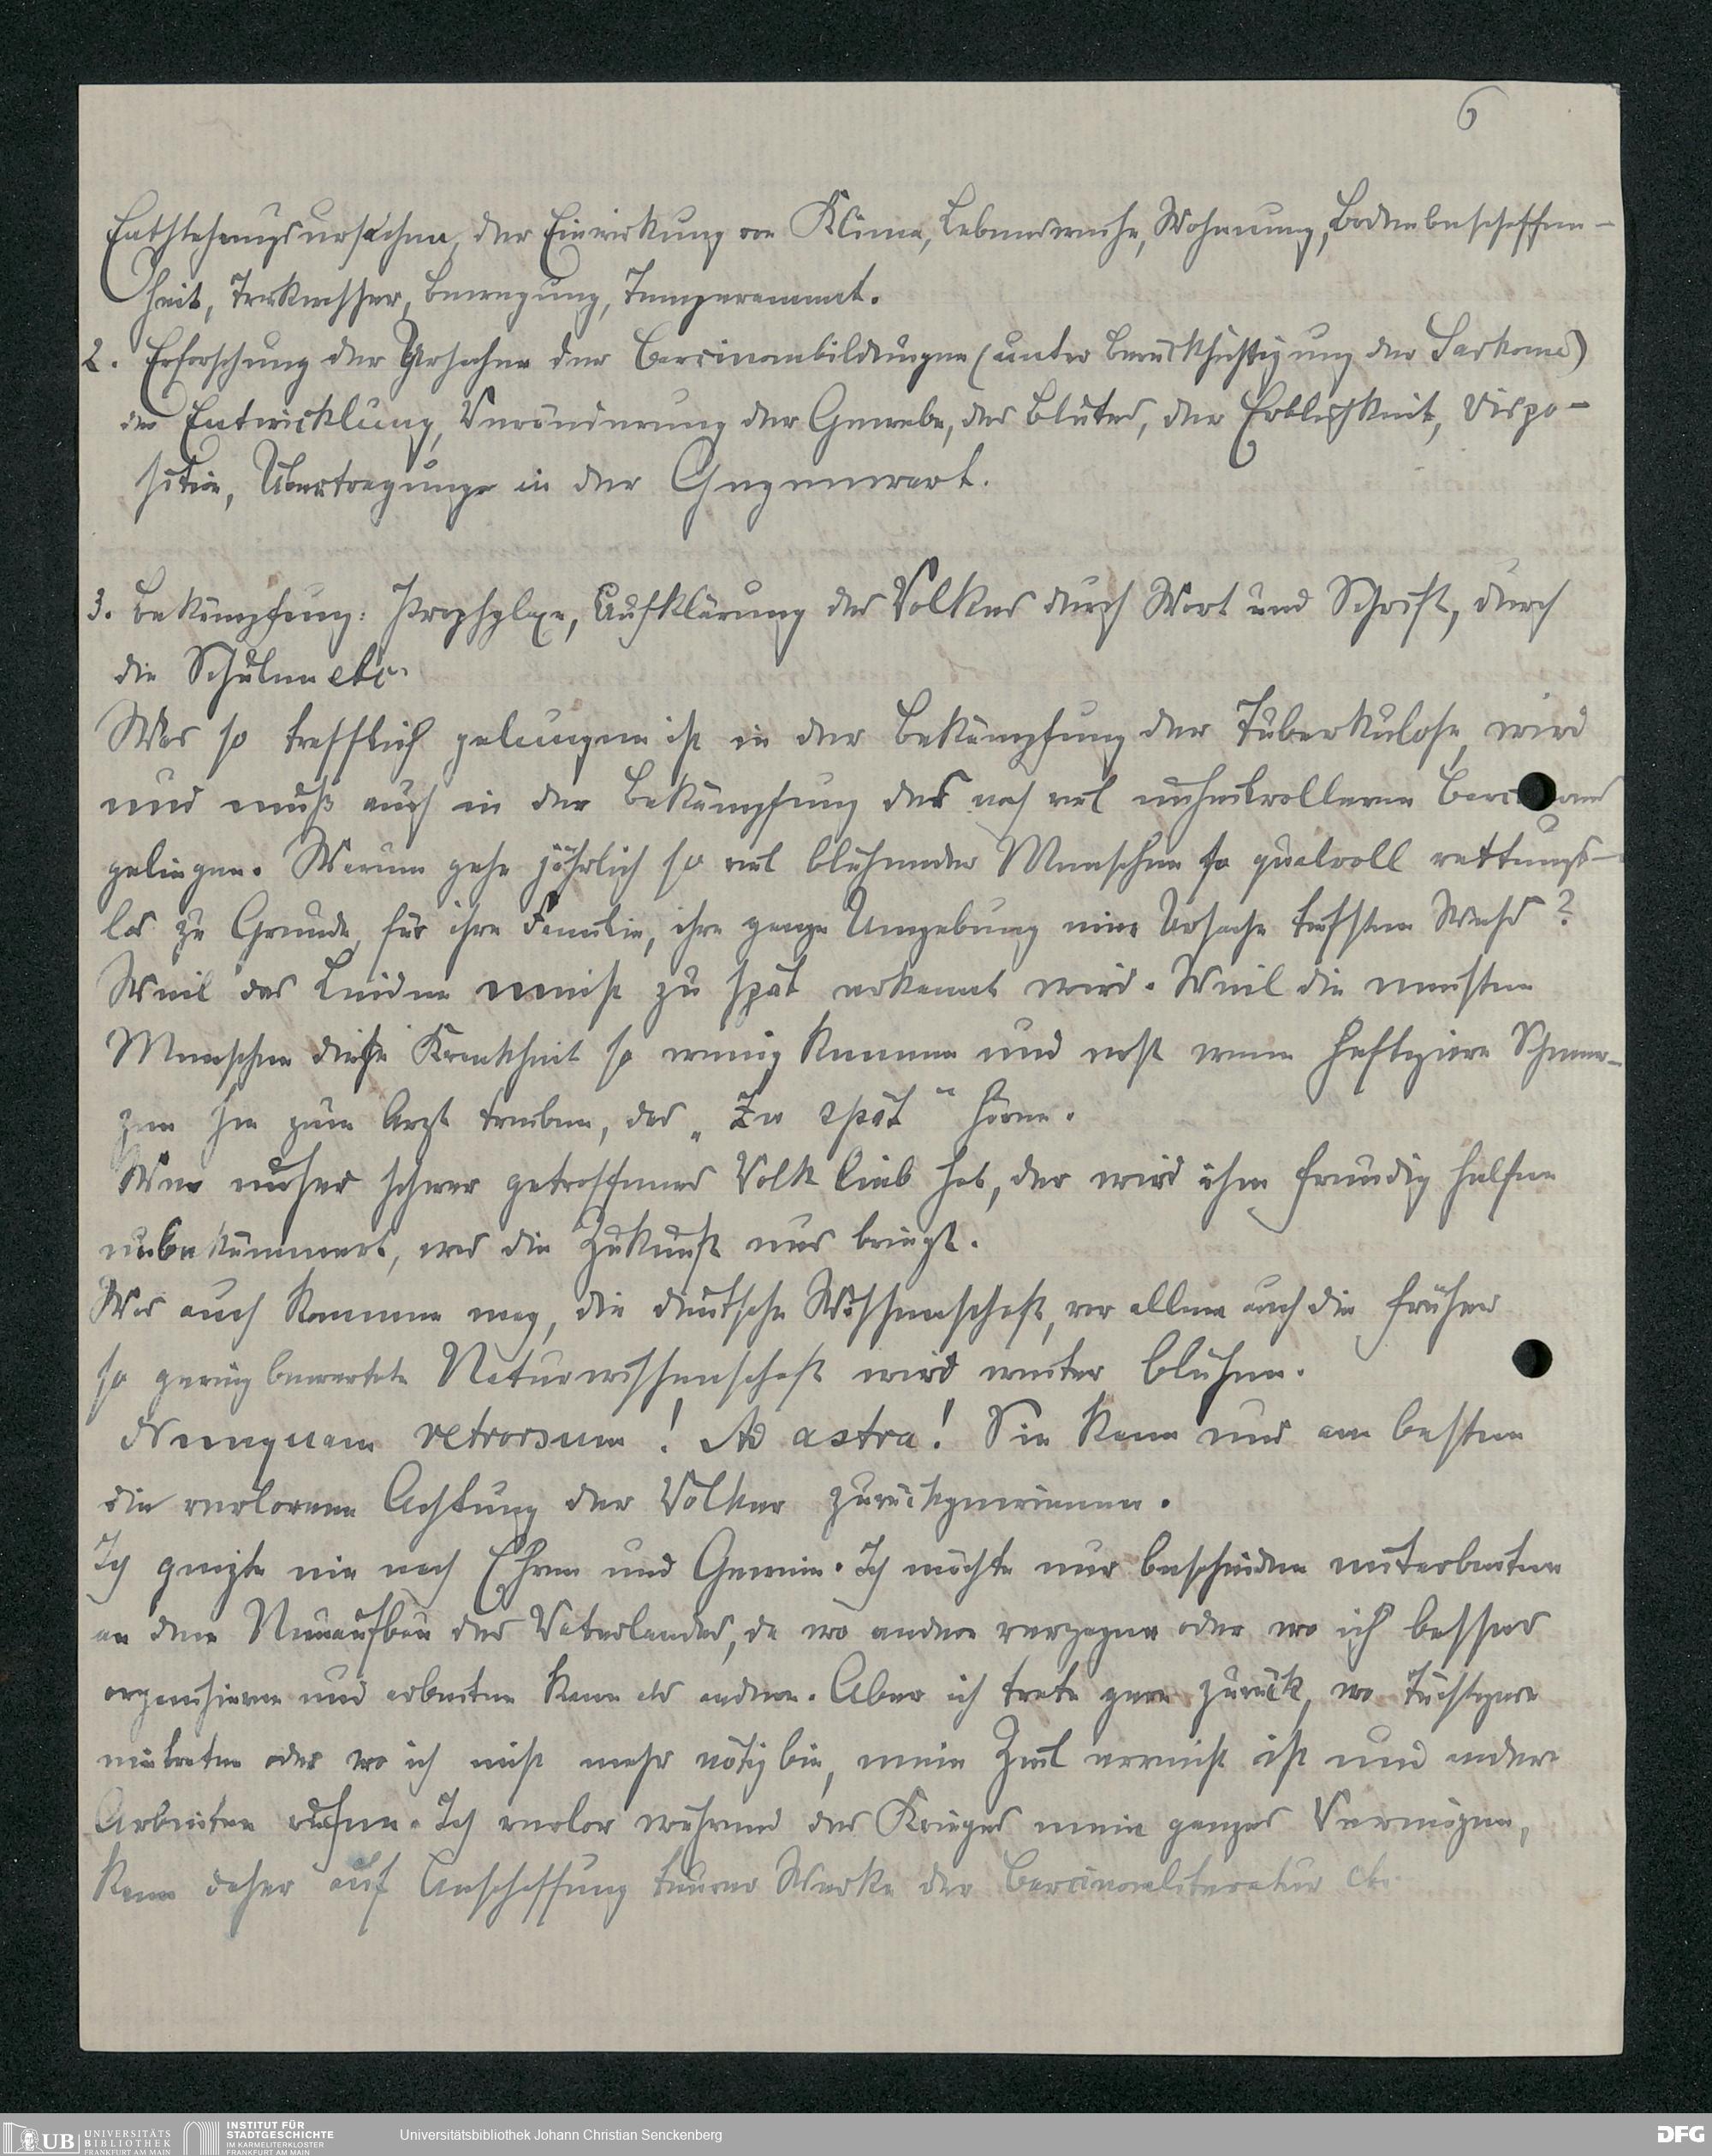 6
Entstehungsursachen, der Einwirkung von Klima, Lebensweise, Wohnung, Bodenbeschaffen-
heit, Trinkwasser, Bewegung, Temperament.
2. Erforschung der Ursachen der Carcinombildungen (unter Berücksichtigung der Sarkome)
der Entwicklung, Veränderung der Gewebe, des Blutes, der Erblichkeit, Dispo-
sition, Übertragung in der Gegenwart.
3. Bekämpfung: Prophylaxe, Aufklärung des Volkes durch Wort und Schrift, durch
die Schulen etc.
Was so trefflich gelungen ist in der Bekämpfung der Tuberkulose, wird
und muß auch in der Bekämpfung des noch viel unheilvolleren Carcinoms
gelingen. Warum gehen jährlich so viel blühender Menschen so qualvoll rettungs-
los zu Grunde, für ihre Familie, ihre ganze Umgebung eine Ursache tiefsten Wehs?
Weil das Leiden meist zu spät erkannt wird. Weil die meisten
Menschen diese Krankheit so wenig kennen und erst wenn heftigere Schmer-
zen sie zum Arzt treiben, das „Zu spät" hören.
Wer unser schwer getroffenes Volk lieb hat, der wird ihm freudig helfen
unbekümmert, was die Zukunft uns bringt.
Was auch kommen mag, die deutsche Wissenschaft, vor allem auch die früher
so gering bewertete Naturwissenschaft wird weiter blühen.
Nunquam retrorsum! Ad astra! Sie kann uns am besten
die verlorene Achtung der Völker zurückgewinnen.
Ich geizte nie nach Ehren und Gewinn. Ich möchte nur bescheiden mitarbeiten
an dem Neuaufbau des Vaterlandes, da wo andere verzagen oder wo ich besser
organisieren und arbeiten kann als andere. Aber ich trete gern zurück, wo Tüchtigere
eintreten oder wo ich nicht mehr nötig bin, mein Ziel erreicht ist und andere
Arbeiten rufen. Ich verlor während des Krieges mein ganzes Vermögen,
kann daher auf Anschaffung teurer Werke der Carcinomliteratur etc.
UB UNIVERSITÄTS
BIBLIOTHEK
FRANKFURT AM MAIN
INSTITUT FÜR
STADTGESCHICHTE
IM KARMELITERKLOSTER
FRANKFURT AM MAIN
Universitätsbibliothek Johann Christian Senckenberg
DFG